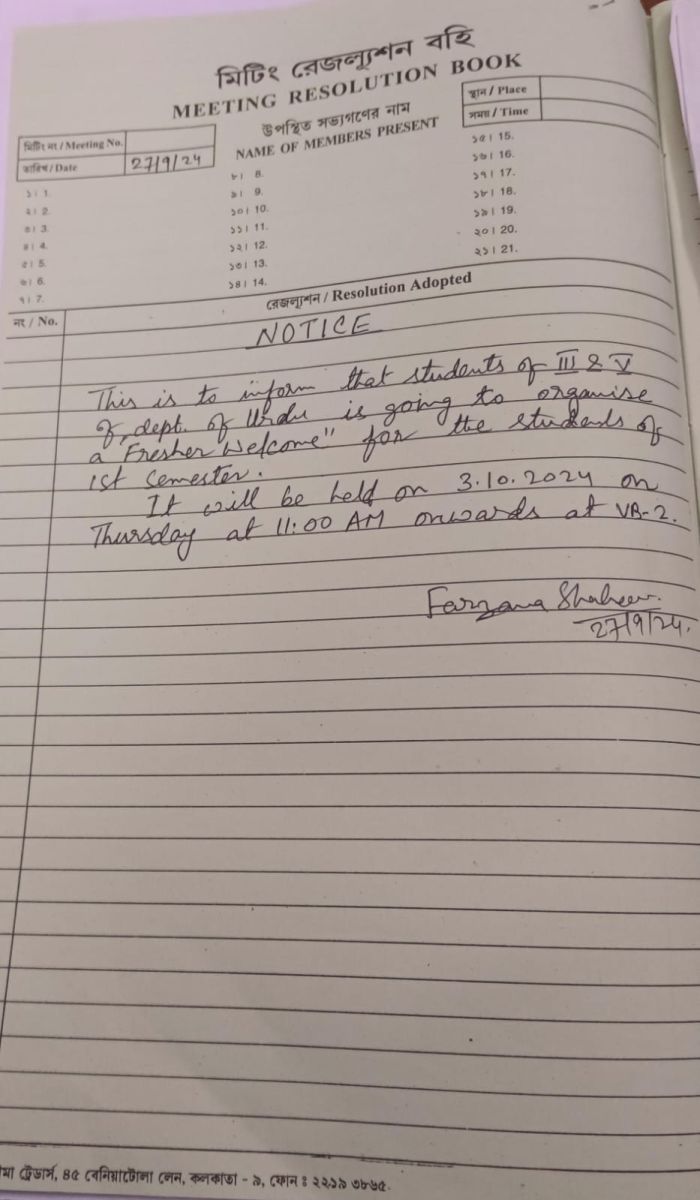 মিটিং রেজল্যুশন বহি
MEETING RESOLUTION BOOK
মিটিং নং / Meeting No.
তারিখ / Date 27/9/24
উপস্থিত সভ্যগণের নাম
NAME OF MEMBERS PRESENT
স্থান / Place
সময় / Time
১। 1.
২। 2.
৩। 3.
৪। 4.
৫। 5.
৬। 6.
৭। 7.
৮। 8.
৯। 9.
১০। 10.
১১। 11.
১২। 12.
১৩। 13.
১৪। 14.
১৫। 15.
১৬। 16.
১৭। 17.
১৮। 18.
১৯। 19.
২০। 20.
২১। 21.
নং / No.
রেজল্যুশন / Resolution Adopted
NOTICE
This is to inform that students of III & V
of dept. of Urdu is going to organise
a "Fresher Welcome" for the students of
1st semester.
It will be held on 3.10.2024 on
Thursday at 11:00 AM onwards at VB-2.
Farzana Shaheen.
27/9/24.
ট্রেডার্স, ৪৫ বেনিয়াটোলা লেন, কলকাতা - ৯, ফোন : ২২১৯ ৩৮৬৫.